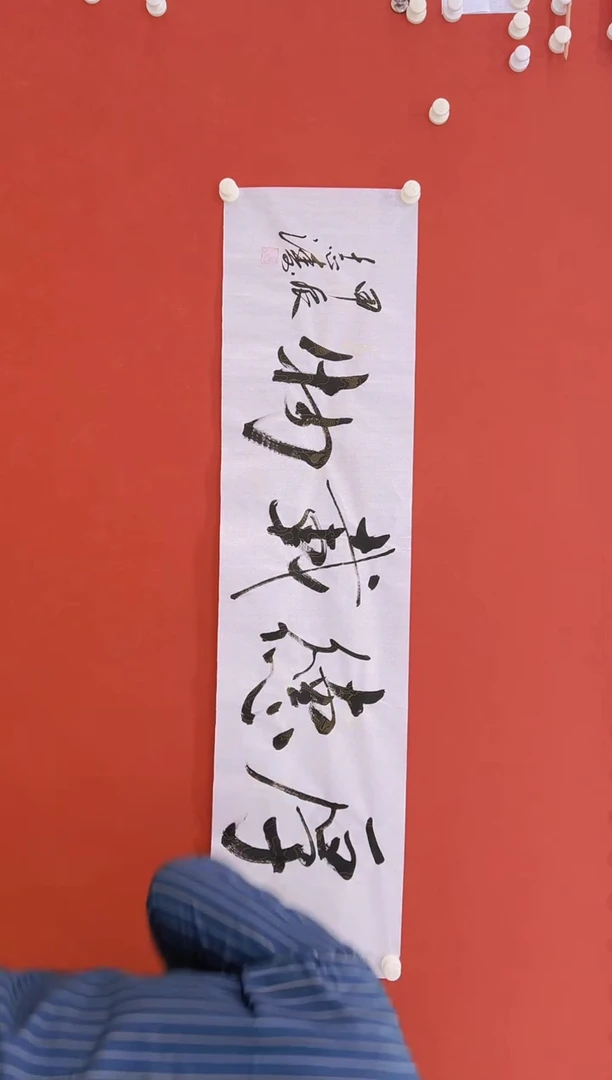 厚德載物
甲辰